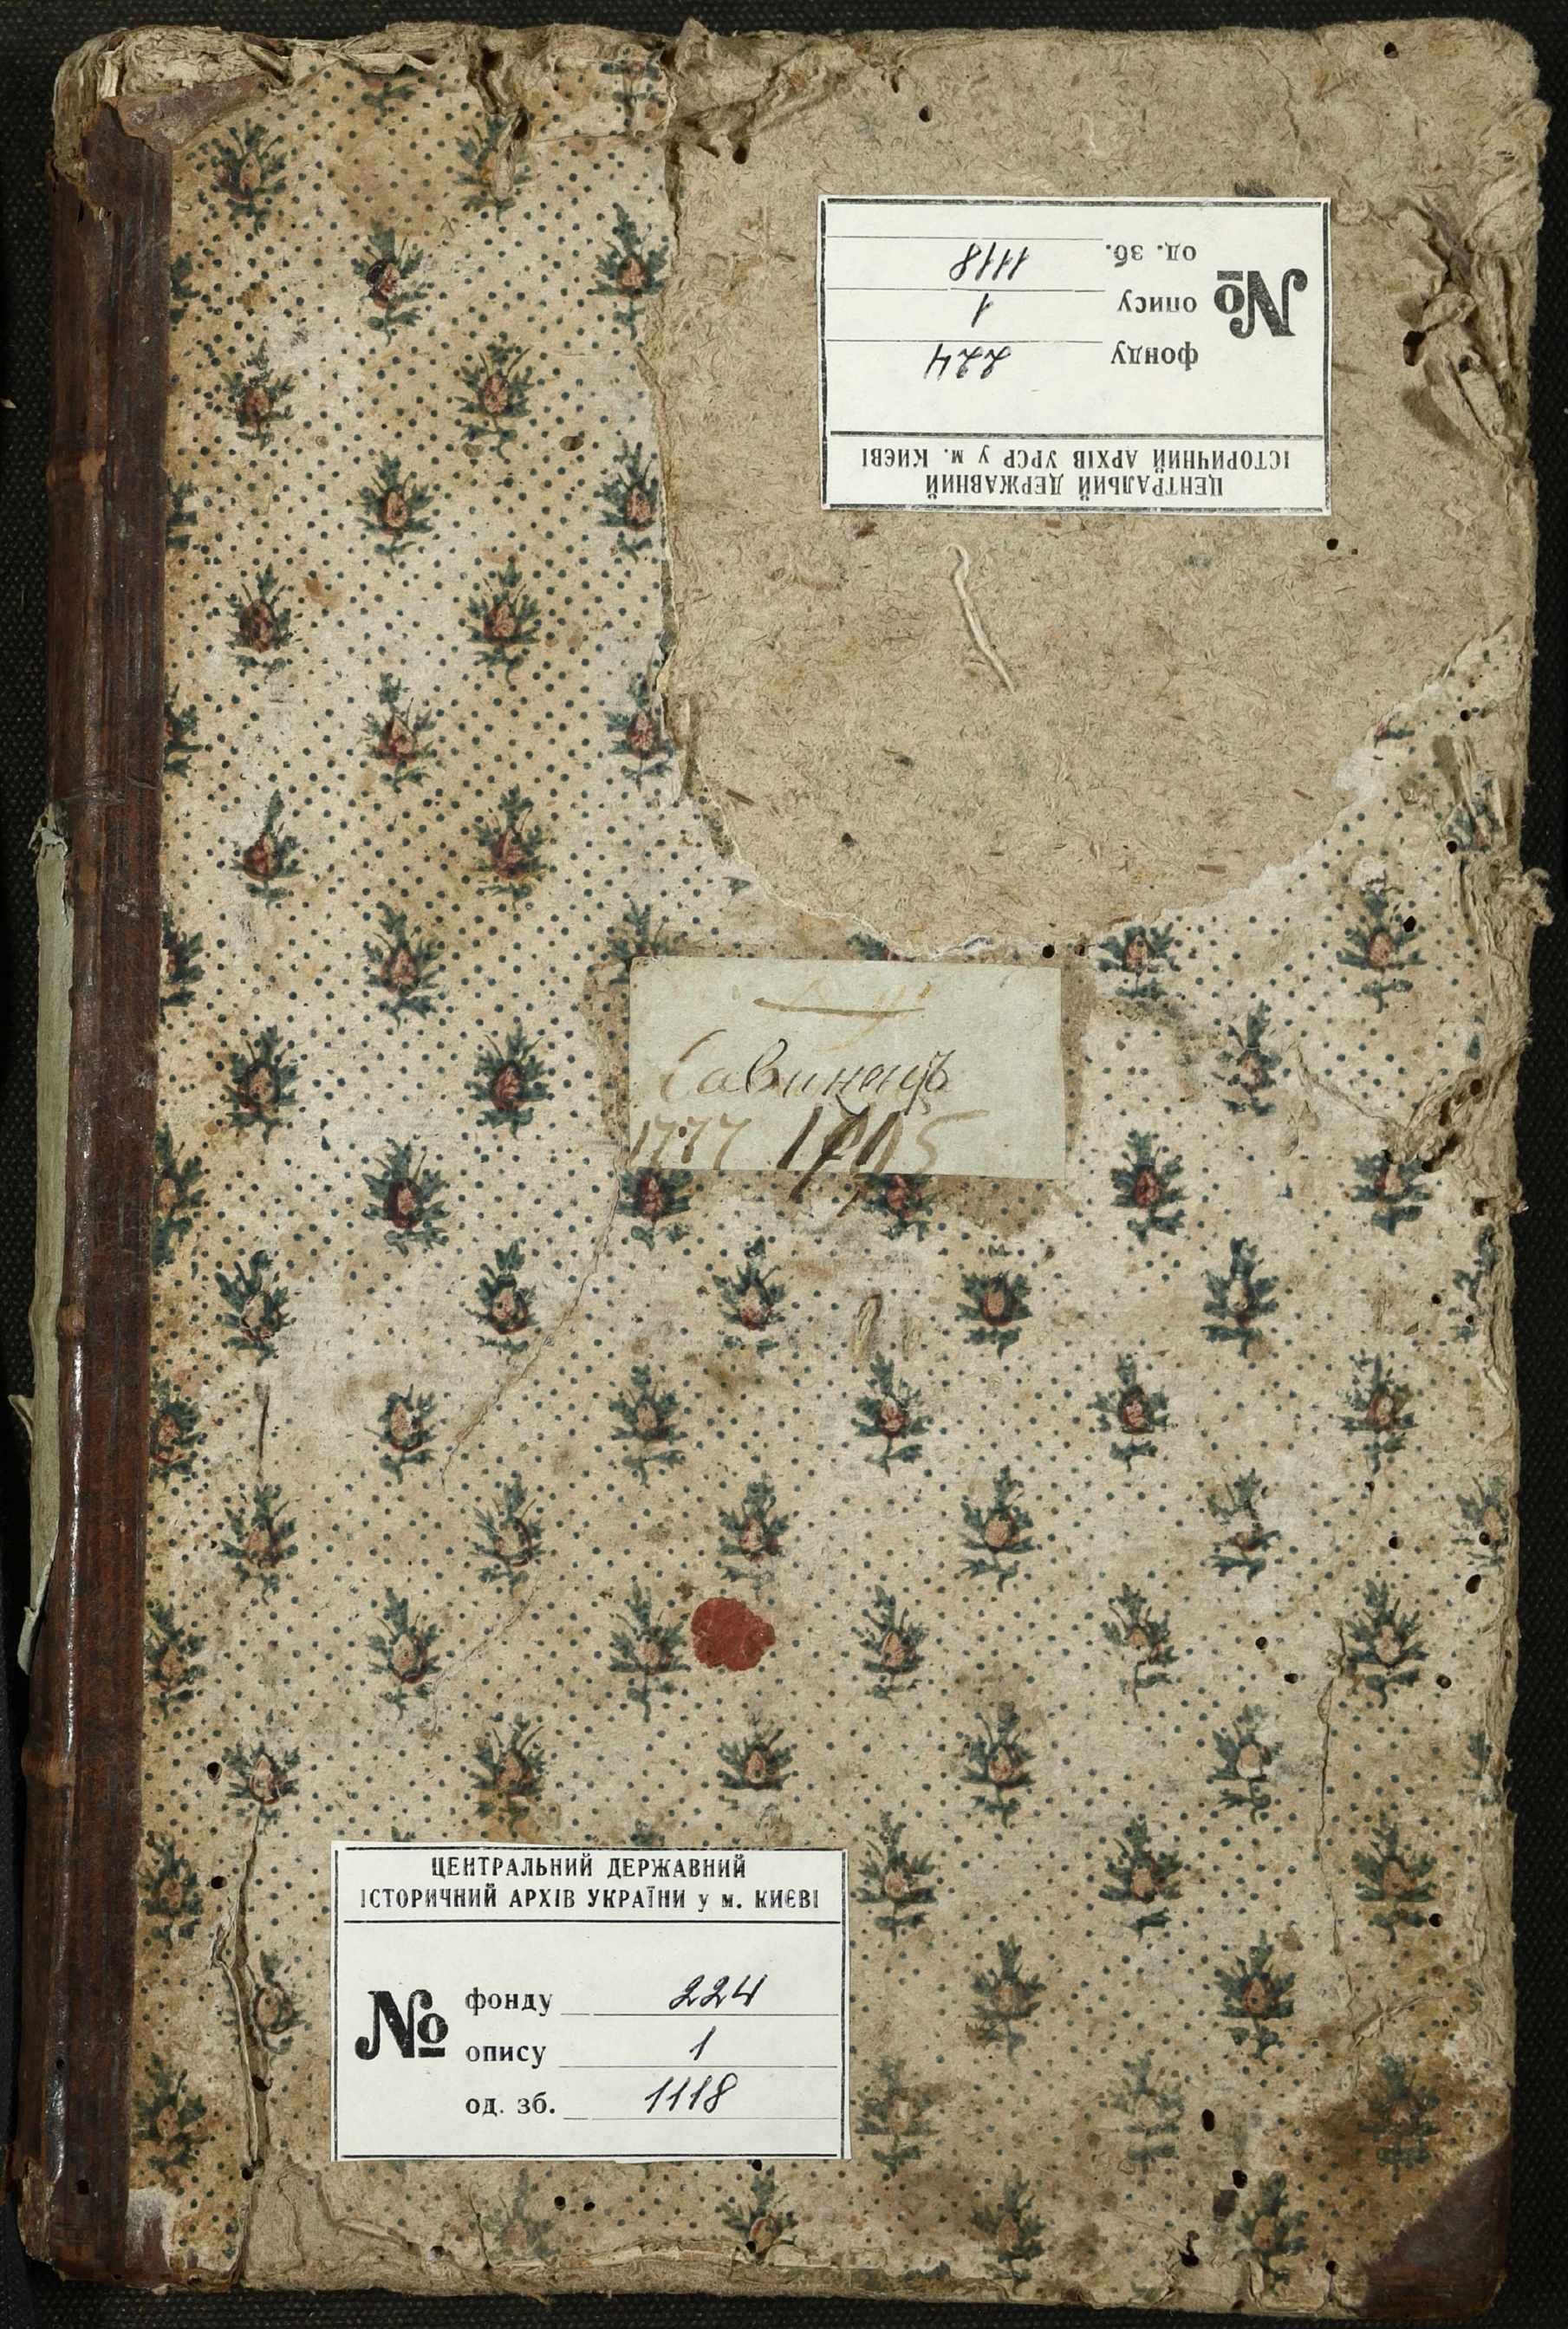 ЦЕНТРАЛЬНИЙ ДЕРЖАВНИЙ
ІСТОРИЧНИЙ АРХІВ УРСР у м. КИЄВІ
№
фонду 224
опису 1
од. зб. 1118
Савинецъ
1777
ЦЕНТРАЛЬНИЙ ДЕРЖАВНИЙ
ІСТОРИЧНИЙ АРХІВ УКРАЇНИ у м. КИЄВІ
№
фонду 224
опису 1
од. зб. 1118